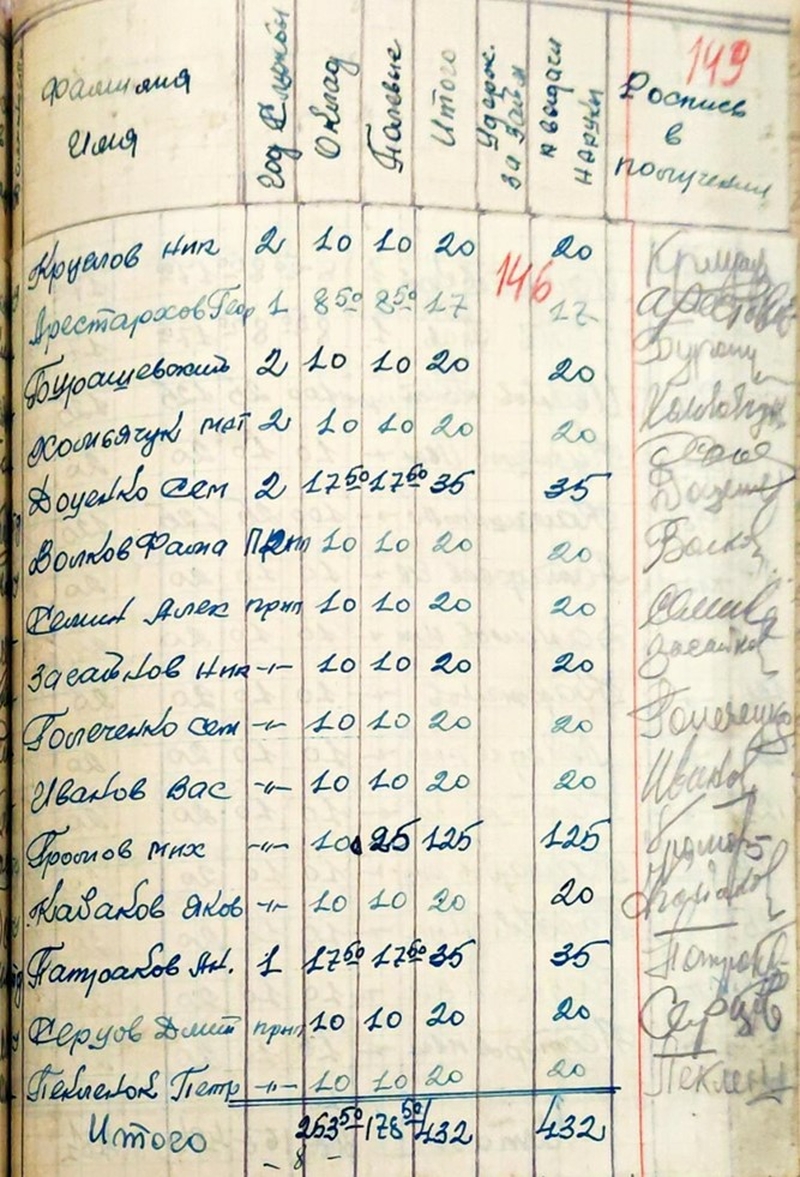 149
Фамилия Имя Год службы Оклад Полевые Итого Удерж. за займ к выдачи На руки Роспись в получении
146
Круглов Ник 2 10 10 20 20
Арестархов Геор 1 8 50 8 50 17 17 Арестов
Бурашевский 2 10 10 20 20 Бураш
Хомьячук мат 2 10 10 20 20
Доценко Сем 2 17 50 17 50 35 35 Доценко
Волков Фама прип 10 10 20 20 Волков
Семин Алек прип 10 10 20 20 Семин
Засайков Ник -"- 10 10 20 20 Засайков
Голеченко Сем -"- 10 10 20 20
Иванов Вас -"- 10 10 20 20 Иванов
Громов мих -"- 10 25 125 125 Громов
Казаков Яков -"- 10 10 20 20 Казаков
Патраков Ан. 1 17 50 17 50 35 35 Патраков
Серцов Дмит прип 10 10 20 20 Серцов
Пекленок Петр -"- 10 10 20 20 Пеклен
Итого 253 50 178 50 432 432
- 8 -